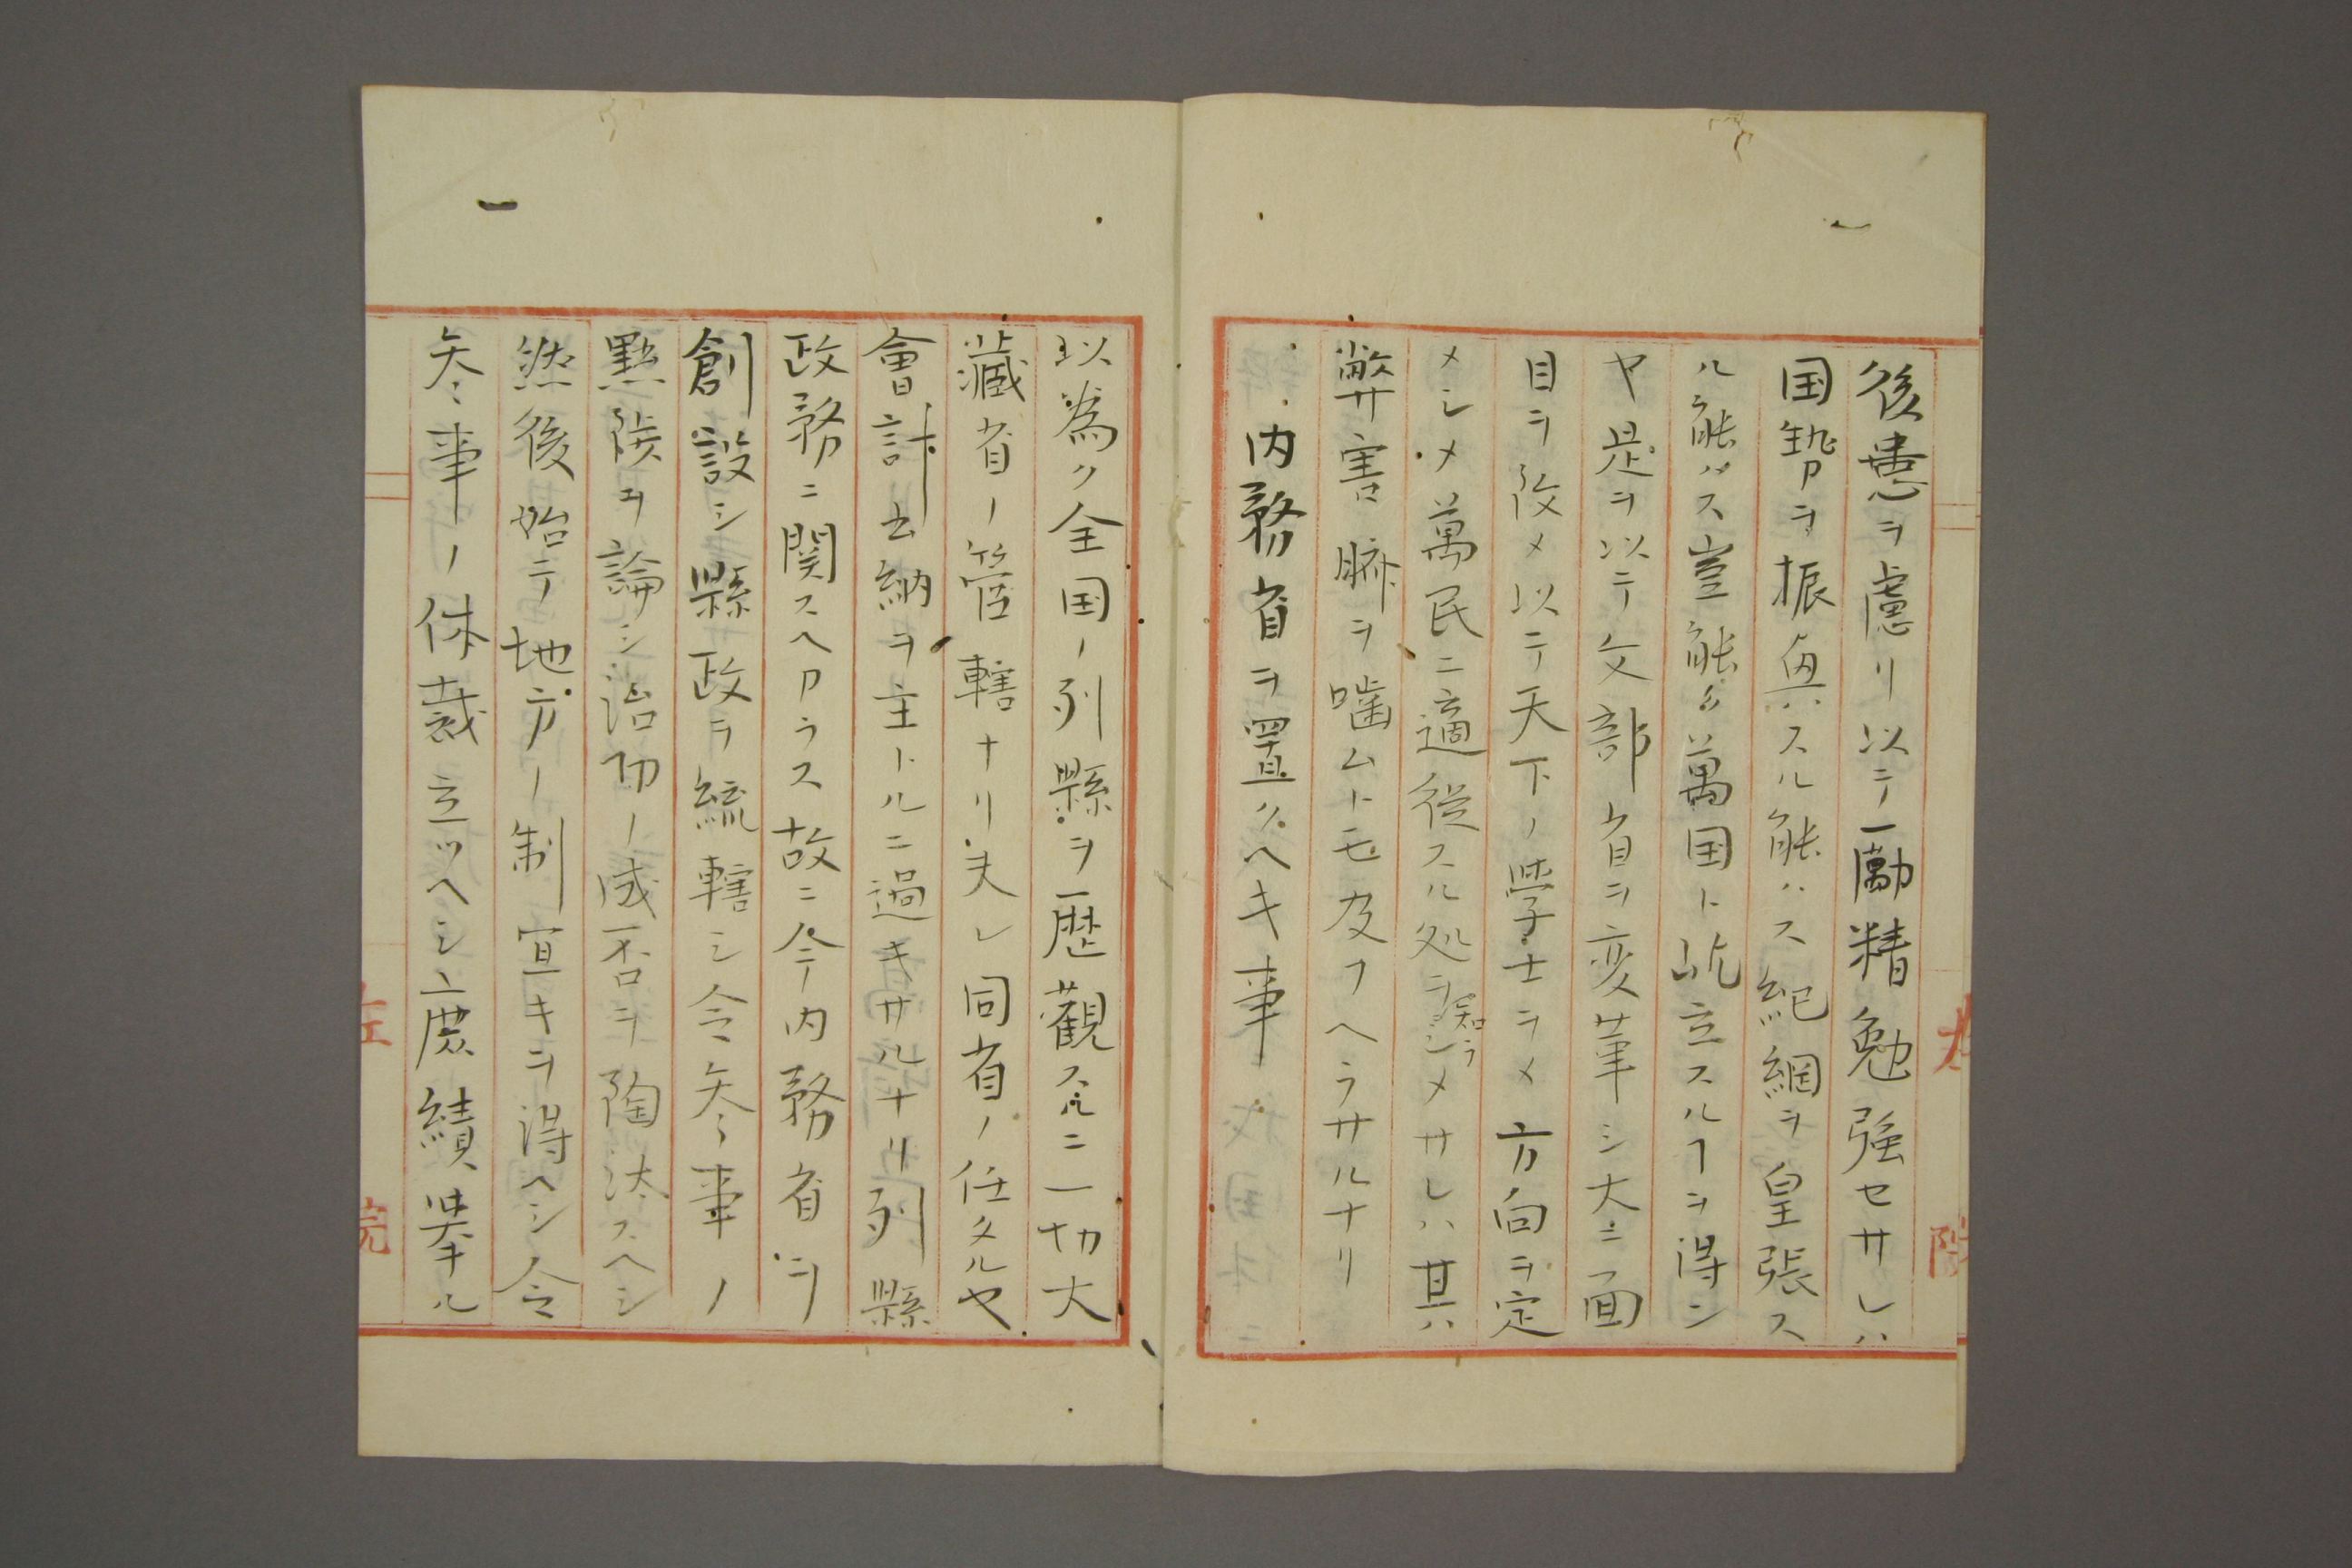 後患ヲ慮リ以テ勵精勉強セサレハ
国勢ヲ振興スル能ハス紀綱ヲ皇張ス
ル能ハス豈能ク萬国ト屹立スルヿヲ得ン
ヤ是ヲ以テ文部省ヲ変革シ大ニ面
目ヲ改メ以テ天下ノ學士ヲメ方向ヲ定
メシメ萬民ニ適從スル処ヲ知ラシメサレハ其
弊害臍ヲ噬ムトモ及フヘラサルナリ
内務省ヲ置クヘキ事
以為ク全国ノ列縣ヲ歴觀スルニ一切大
藏省ノ管轄ナリ夫レ同省ノ任タルヤ
會計出納ヲ主トルニ過キサルナリ列縣
政務ニ関スヘアラス故ニ今内務省ヲ
創設シ縣政ヲ統轄シ令参事ノ
黜陟ヲ論シ治功ノ成否ヲ陶汰スヘシ
然後始テ地方ノ制宜キヲ得ヘシ令
参事ノ体裁立ツヘシ庶績挙ル
左院